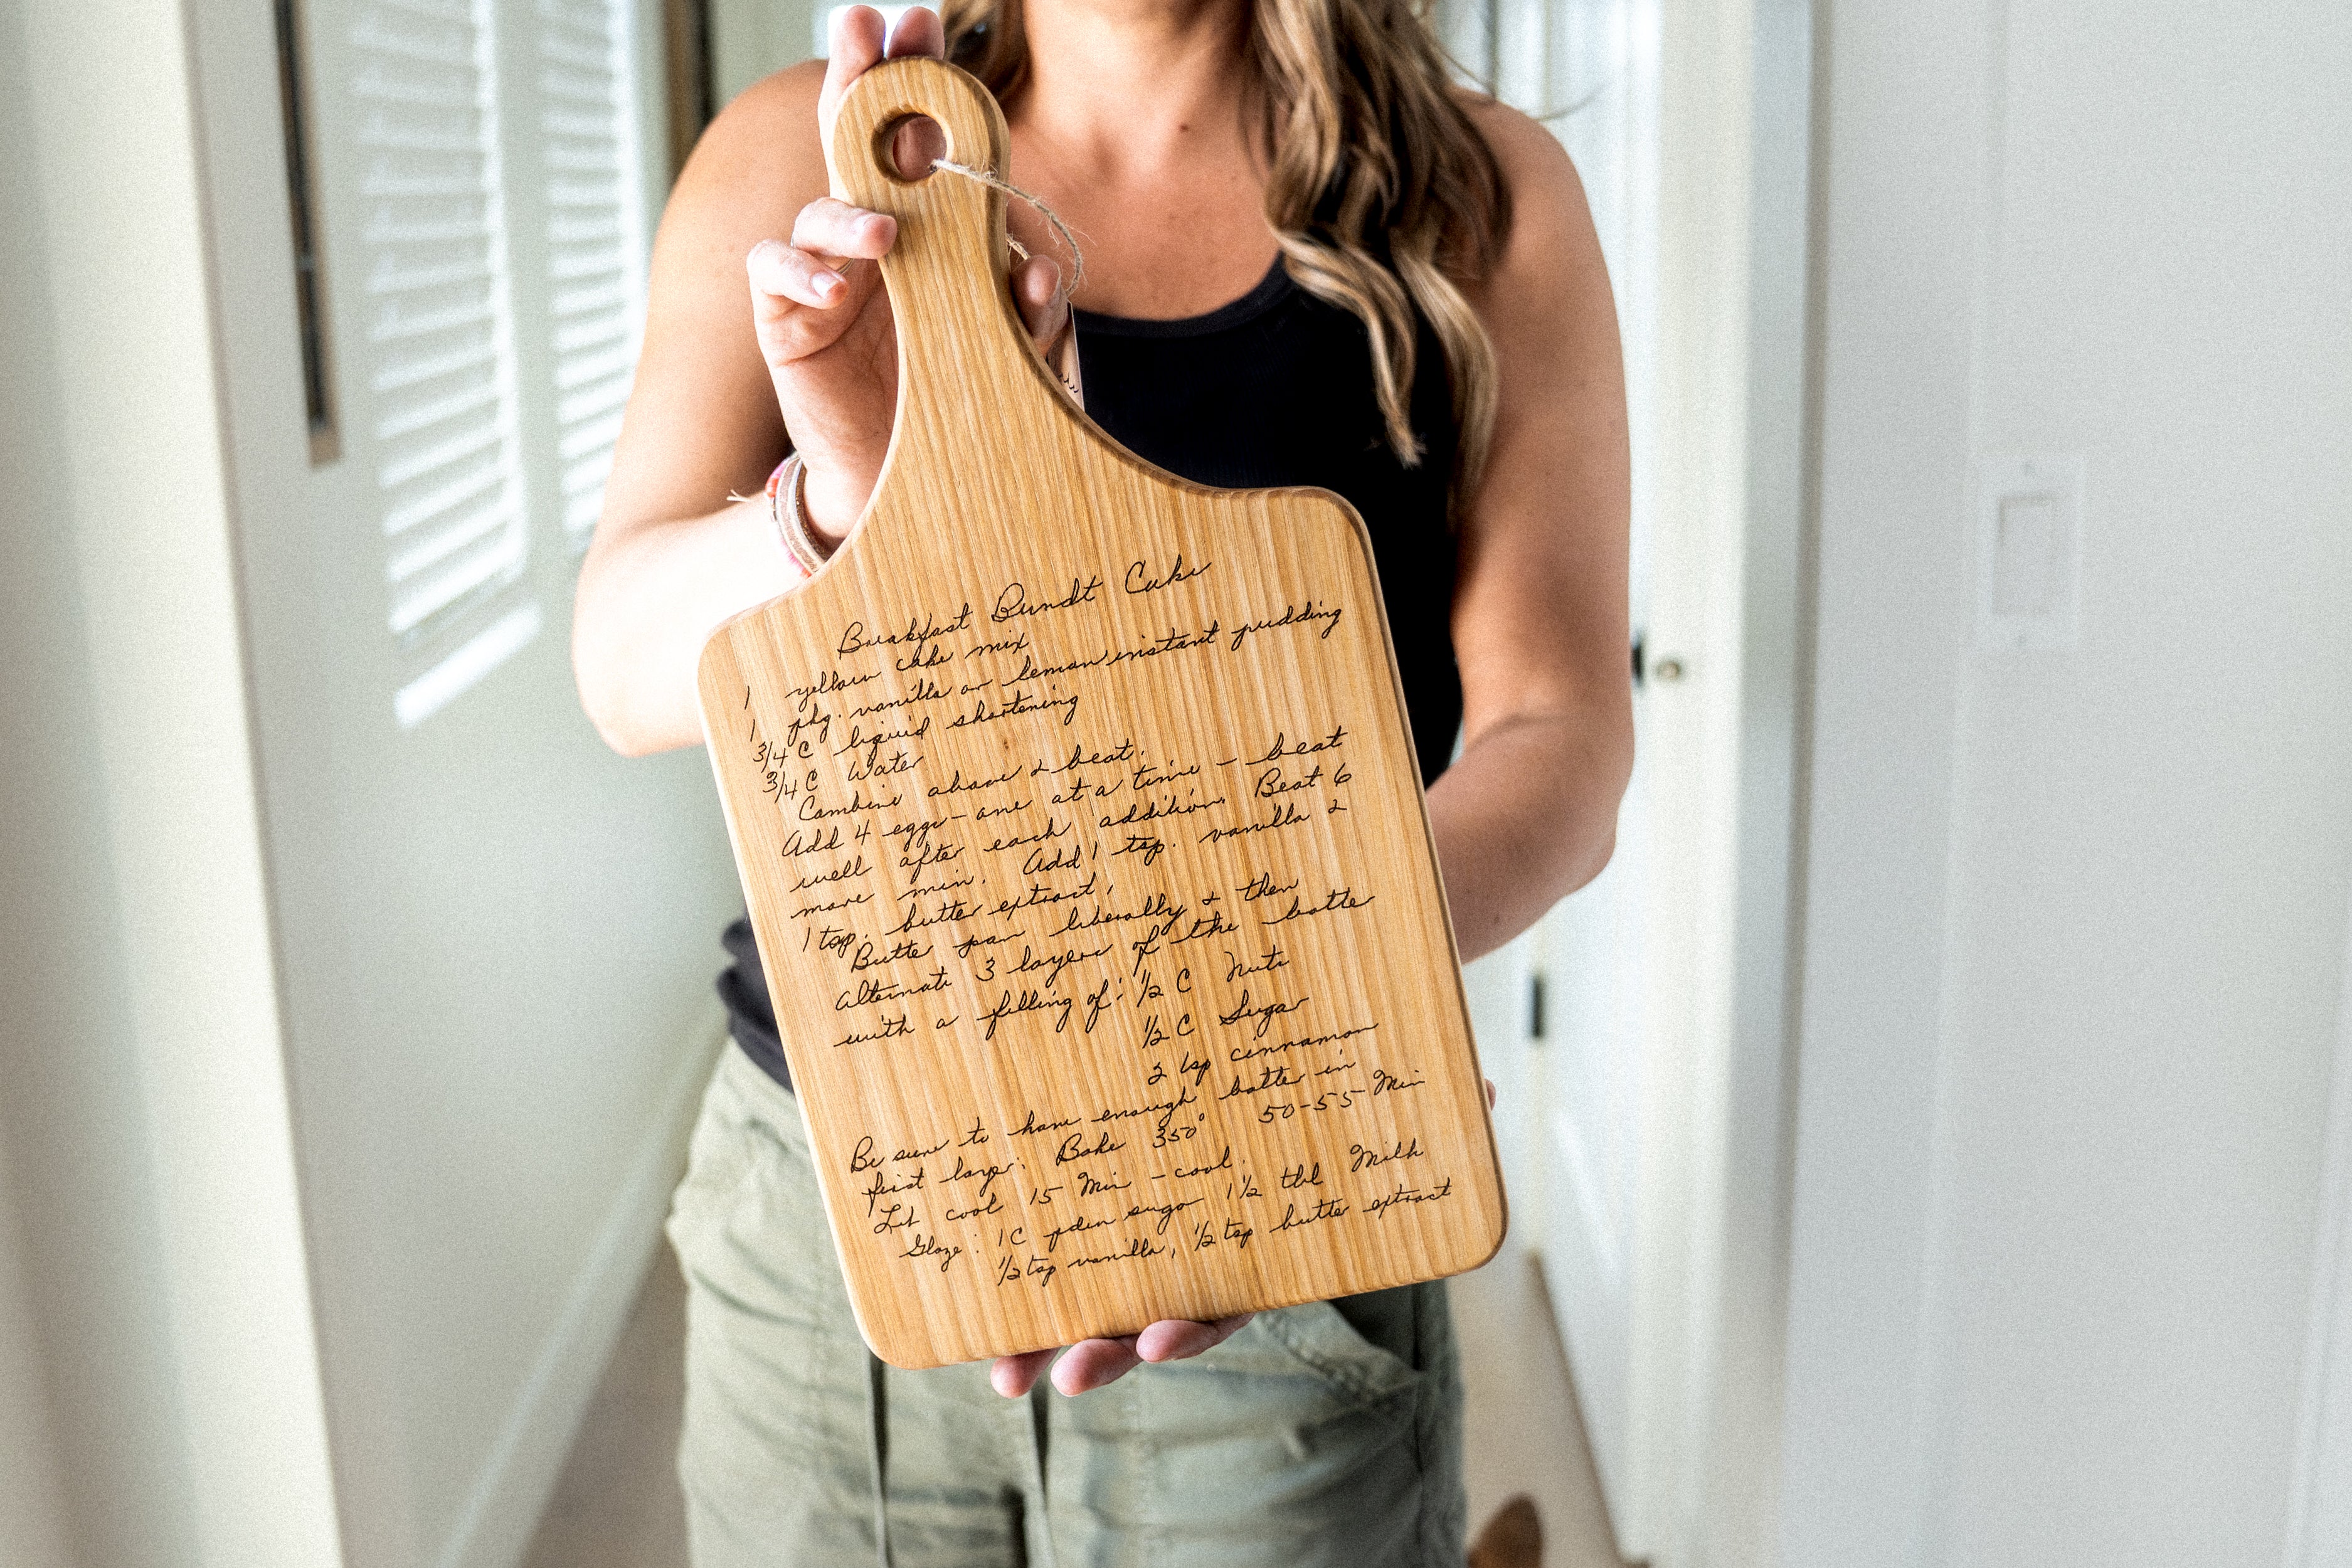 Breakfast Bundt Cake
1 yellow cake mix
1 pkg. vanilla or lemon instant pudding
3/4 C liquid shortening
3/4 C Water
Combine above & beat.
Add 4 eggs - one at a time - beat
well after each addition. Beat 6
more min. Add 1 tsp. vanilla &
1 tsp. butter extract.
Butter pan liberally & then
alternate 3 layers of the batter
with a filling of: 1/2 C Nuts
1/2 C Sugar
2 tsp cinnamon
Be sure to have enough batter in
first layer. Bake 350° 50-55 Min
Let cool 15 Min - cool.
Glaze: 1 C pdm sugar 1 1/2 tbl Milk
1/2 tsp vanilla, 1/2 tsp butter extract